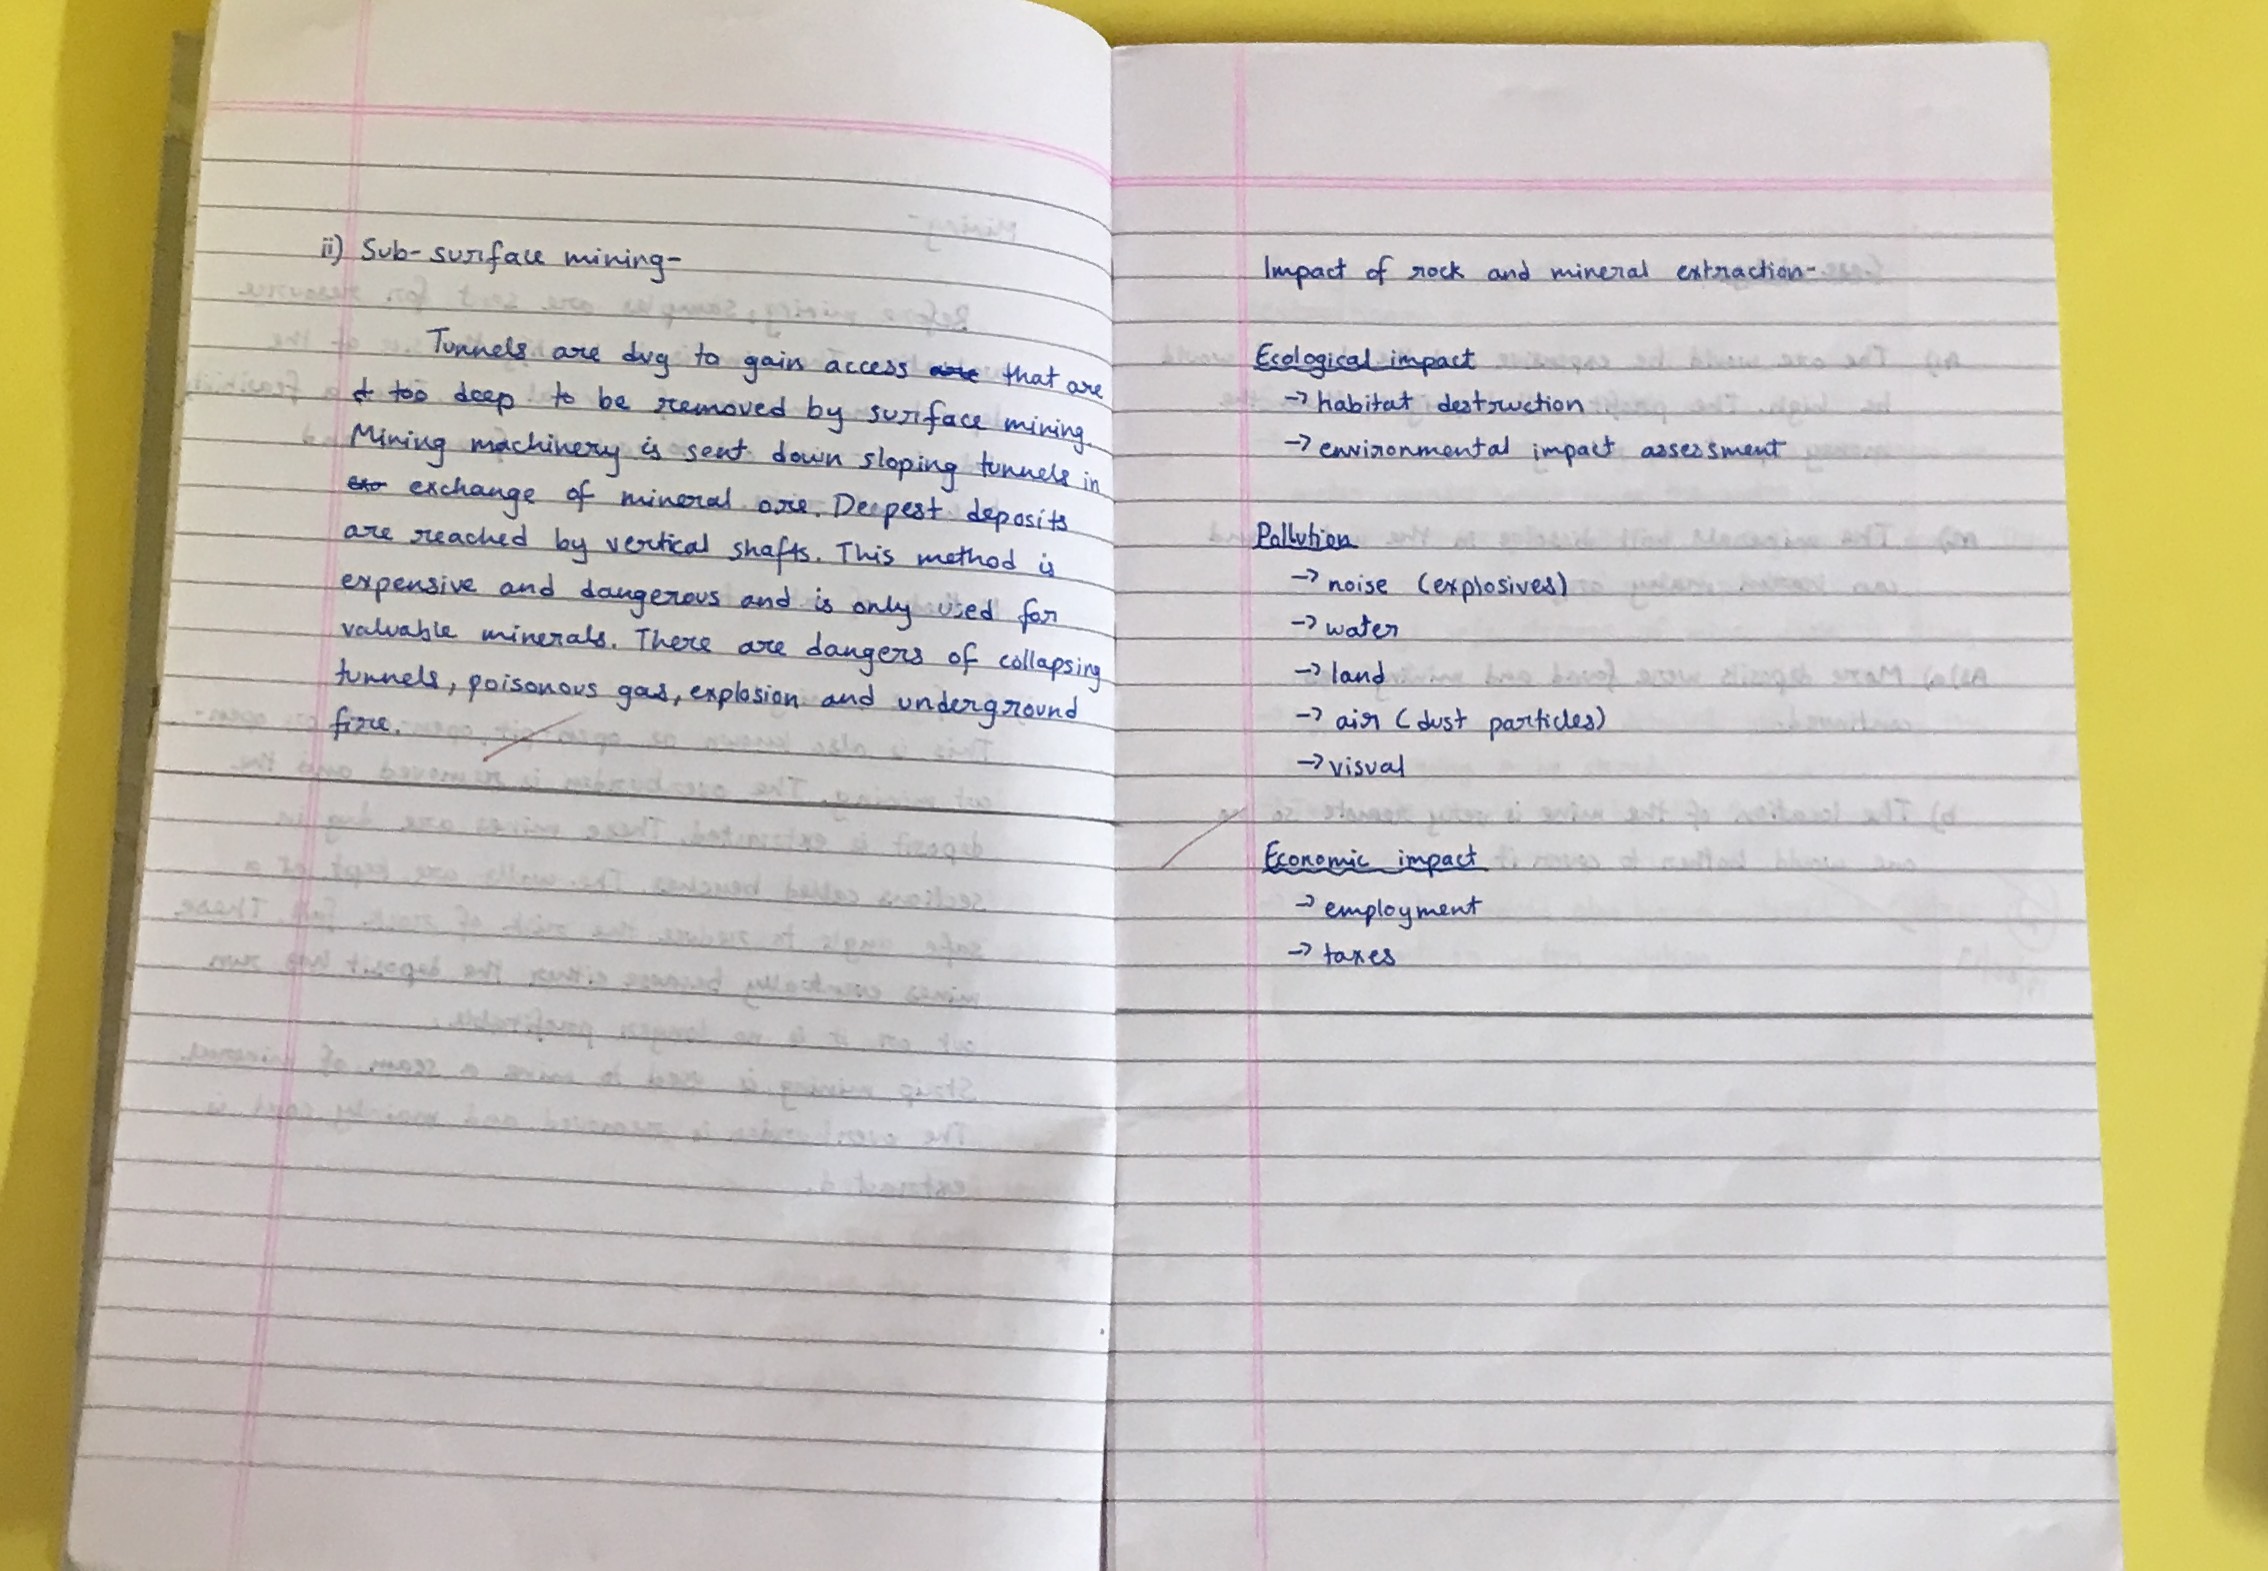 ii) Sub-surface mining-
Tunnels are dug to gain access that are
too deep to be removed by surface mining.
Mining machinery is sent down sloping tunnels in
exchange of mineral ore. Deepest deposits
are reached by vertical shafts. This method is
expensive and dangerous and is only used for
valuable minerals. There are dangers of collapsing
tunnels, poisonous gas, explosion and underground
fire.
Impact of rock and mineral extraction-
Ecological impact
→ habitat destruction
→ environmental impact assessment
Pollution
→ noise (explosives)
→ water
→ land
→ air (dust particles)
→ visual
Economic impact
→ employment
→ taxes